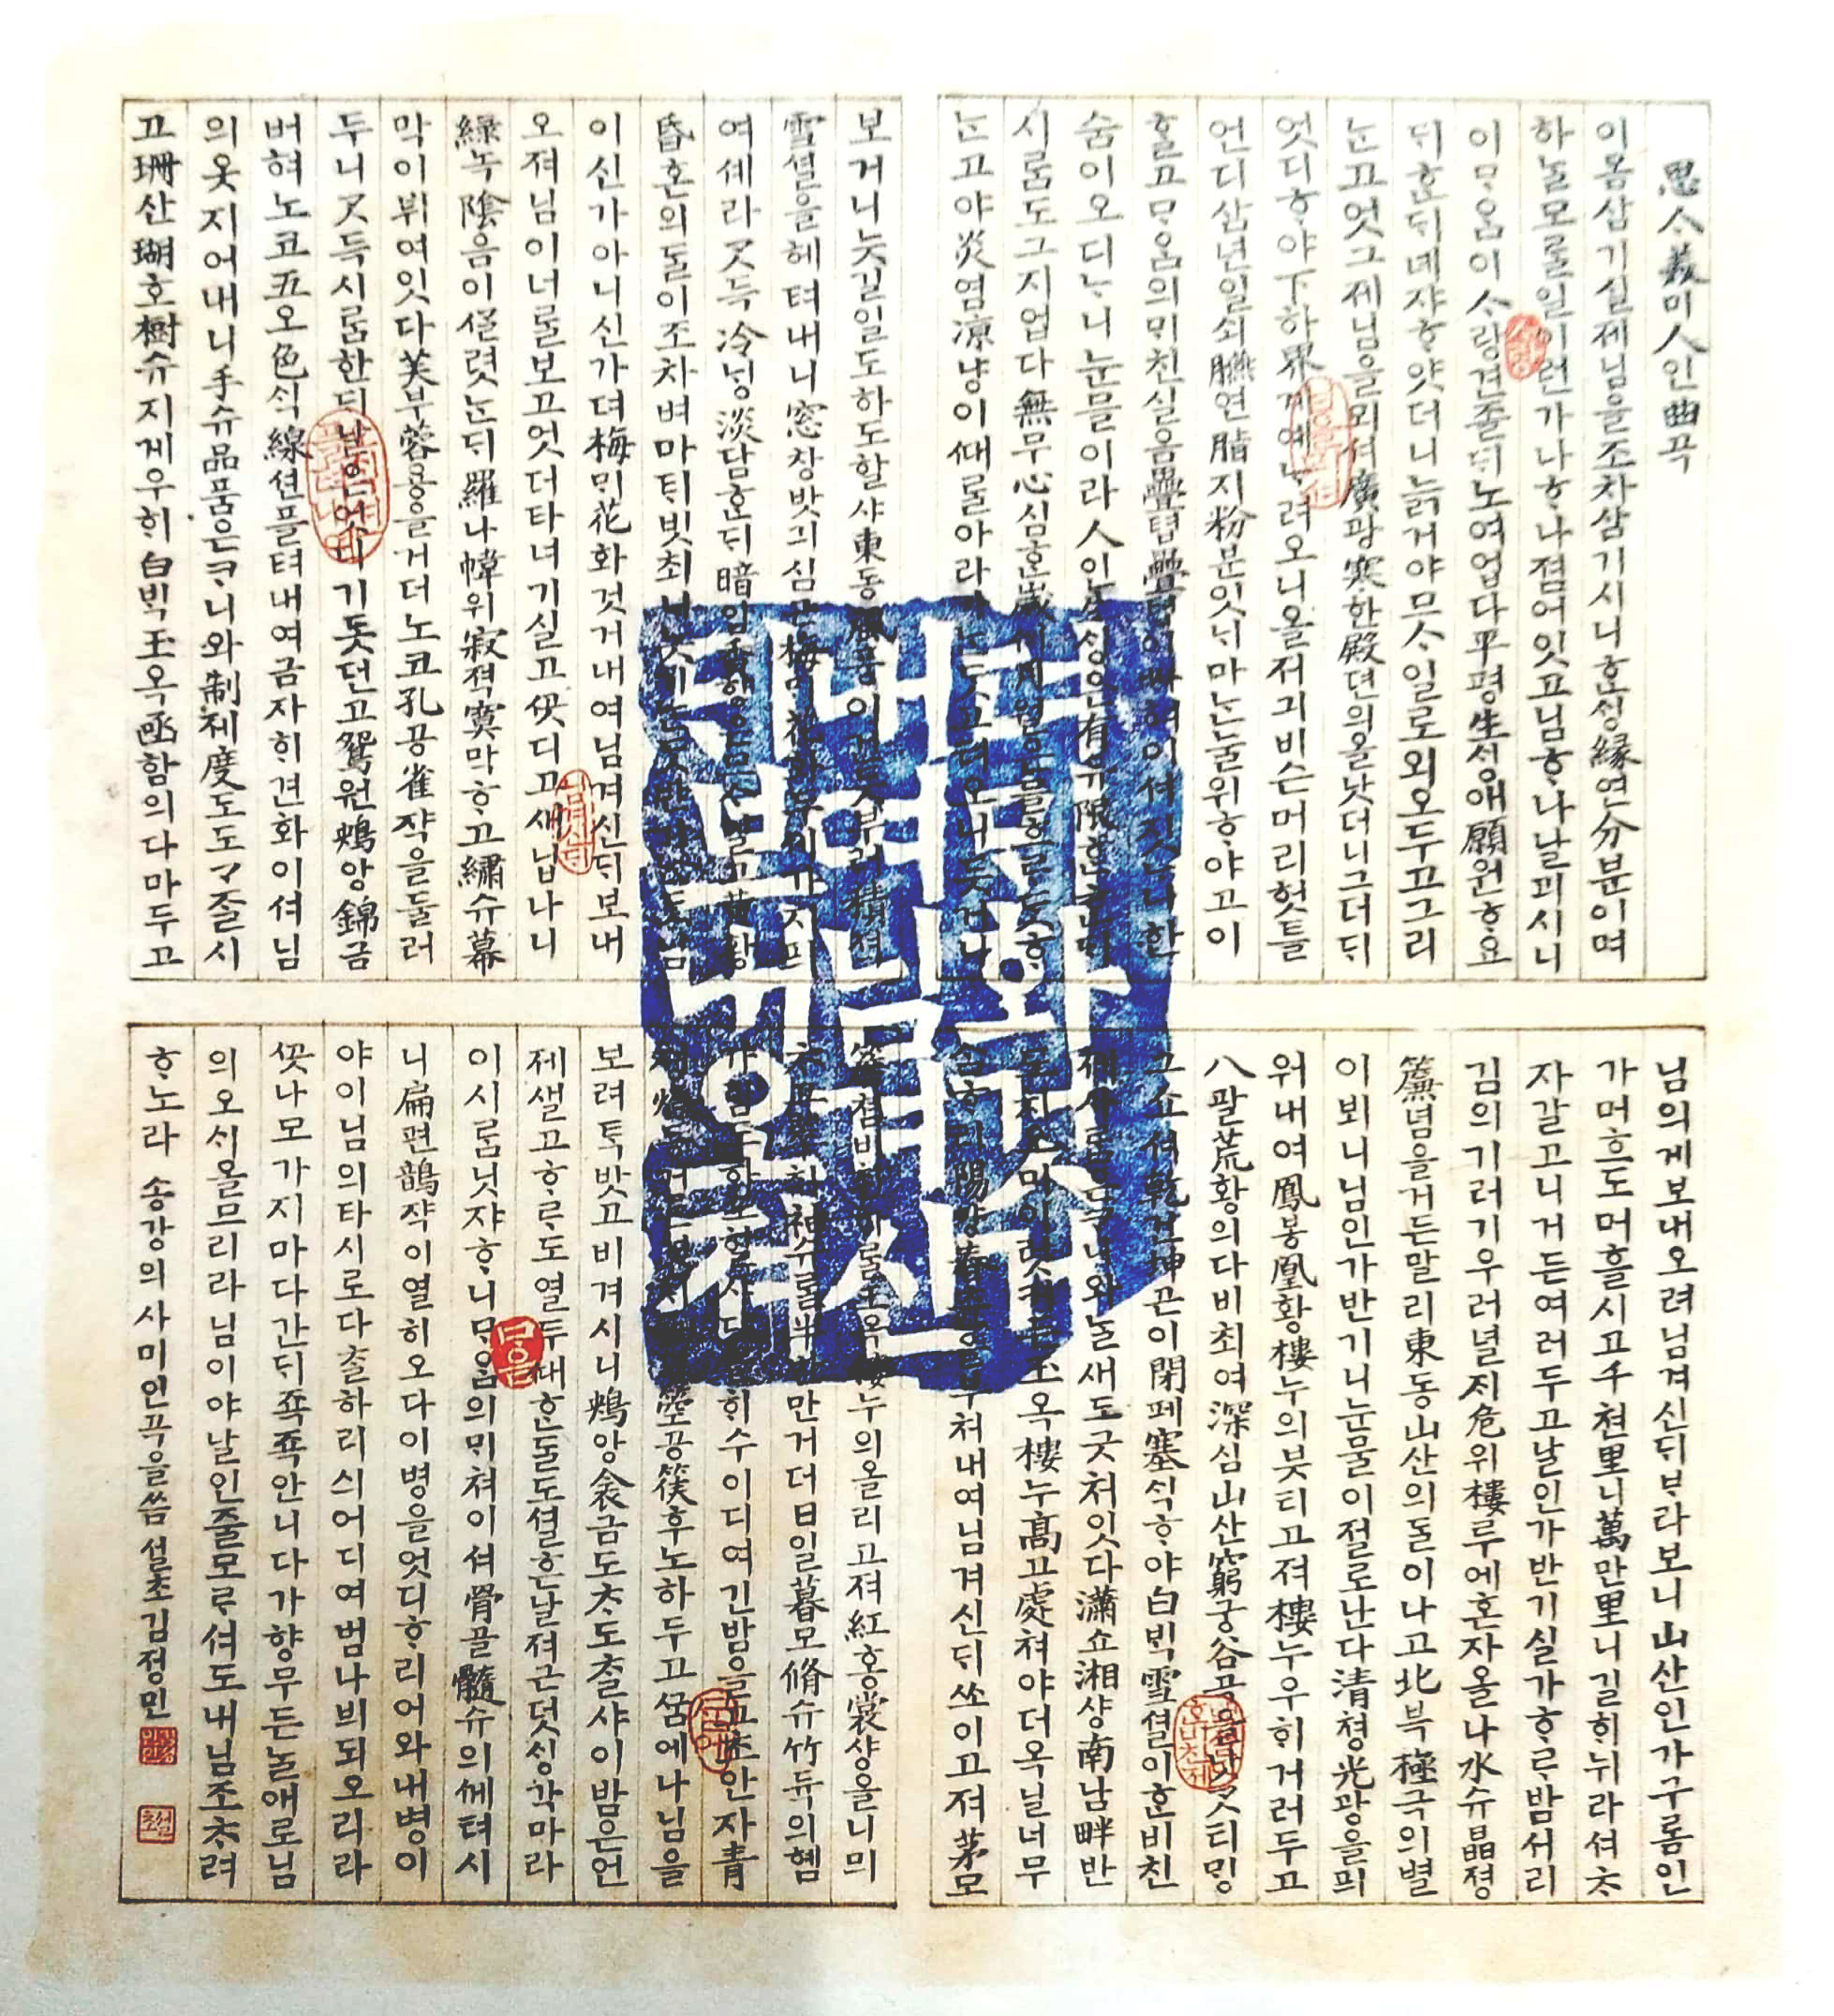 思ᄉᆞ美미人인曲곡
이몸삼기실제님을조차삼기시니ᄒᆞᆫᄉᆡᆼ緣연分분이며
하ᄂᆞᆯ모ᄅᆞᆯ일이런가나ᄒᆞ나졈어잇고님ᄒᆞ나날괴시니
이ᄆᆞ음이ᄉᆞ랑견졸ᄃᆡ노여업다平평生ᄉᆡᆼ애願원ᄒᆞ요
ᄃᆡᄒᆞᆫᄃᆡ녜쟈ᄒᆞ얏더니늙거야므ᄉᆞ일로외오두고그리
ᄂᆞᆫ고엇그제님을뫼셔廣광寒한殿뎐의올낫더니그더ᄃᆡ
엇디ᄒᆞ야下하界계예ᄂᆞ려오니올저긔비슨머리헛틀
언디삼년일쇠臙연脂지粉분잇ᄂᆡ마ᄂᆞᆫ눌위ᄒᆞ야고이
ᄒᆞᆯ고ᄆᆞ음의ᄆᆡ친실음疊텹疊텹이싸혀이셔짓ᄂᆞ니한
숨이오디ᄂᆞ니눈믈이라人인生ᄉᆡᆼ은有유限ᄒᆞᆫᄒᆞᆫᄃᆡ
시ᄅᆞᆷ도그지업다無무心심ᄒᆞᆫ歲셰月월은믈흐ᄅᆞᄃᆞᆺᄒᆞ
ᄂᆞᆫ고야炎염凉냥이ᄣᅢᄅᆞᆯ아라가ᄂᆞᆫᄃᆞᆺ고텨오니듯거니
보거니늣길일도하도할샤東동風풍이건듯부러積젹
雪셜을헤텨내니窓창밧긔심근梅ᄆᆡ花화두세가지픠
여셰라ᄀᆞᆺ득冷ᄂᆡᆼ淡담ᄒᆞᆫᄃᆡ暗암香향은므ᄉᆞ일고黃황
昏혼의ᄃᆞᆯ이조차벼마ᄐᆡ빗최니늣기ᄂᆞᆫᄃᆞᆺ반기ᄂᆞᆫᄃᆞᆺ님
이신가아니신가뎌梅ᄆᆡ花화것거내여님겨신ᄃᆡ보내
오져님이너ᄅᆞᆯ보고엇더타녀기실고ᄭᅩᆺ디고새닙나니
綠녹陰음이ᄭᆞᆯ렷ᄂᆞᆫᄃᆡ羅나幃위寂젹寞막ᄒᆞ고繡슈幕
막이뷔여잇다芙부蓉용을거더노코孔공雀쟉을둘러
두니ᄀᆞᆺ득시ᄅᆞᆷ한ᄃᆡ날은엇디기돗던고鴛원鴦앙錦금
버혀노코五오色ᄉᆡᆨ線션플텨내여금자ᄒᆡ견화이셔님
의옷지어내니手슈品품은ᄏᆞ니와制제度도도ᄀᆞᄌᆞᆯ시
고珊산瑚호樹슈지게우ᄒᆡ白ᄇᆡᆨ玉옥函함의다마두고
님의게보내오려님겨신ᄃᆡᄇᆞ라보니山산인가구롬인
가머흐도머흘시고千쳔里니萬만里니길ᄒᆡ뉘라셔ᄎᆞ
자갈고니거든여러두고날인가반기실가ᄒᆞᄅᆞ밤서리
김의기러기우러녈제危위樓루에혼자올나水슈晶졍
簾념을거든말리東동山산의ᄃᆞᆯ이나고北북極극의별
이뵈니님인가반기니눈물이절로난다淸쳥光광을픠
워내여鳳봉凰황樓누의븟티고져樓누우ᄒᆡ거러두고
八팔荒황의다비최여深심山산窮궁谷곡을낫ᄀᆞᆺ티ᄆᆡᆼ
그쇼셔乾건坤곤이閉폐塞ᄉᆡᆨᄒᆞ야白ᄇᆡᆨ雪셜이ᄒᆞᆫ비친
제사ᄅᆞᆷ은ᄏᆞ니와ᄂᆞᆯ새도긋처잇다瀟쇼湘샹南남畔반
도치오미이러커든玉옥樓누高고處쳐야더옥닐너무
ᄉᆞᆷᄒᆞ리陽양春츈을부쳐내여님겨신ᄃᆡ쏘이고져茅모
簷쳠비쵠ᄒᆡᄅᆞᆯ玉옥樓누의올리고져紅홍裳샹을니믜
ᄎᆞ고翠취袖슈ᄅᆞᆯ半반만거더日일暮모脩슈竹듀의헴
가림도하도할샤댜ᄅᆞᆫᄒᆡ수이디여긴밤을고초안자靑
쳥燈등거른겻ᄐᆡ鈿뎐箜공篌후노하두고ᄭᅮᆷ에나님을
보려ᄐᆞᆨ밧고비겨시니鴦앙衾금도ᄎᆞ도ᄎᆞᆯ샤이밤은언
제샐고ᄒᆞᄅᆞ도열두ᄣᅢᄒᆞᆫᄃᆞᆯ도셜흔날져근덧ᄉᆡᆼ각마라
이시ᄅᆞᆷ닛쟈ᄒᆞ니ᄆᆞ음의ᄆᆡ쳐이셔骨골髓슈의ᄭᅦ텨시
니扁편鵲쟉이열히오다이병을엇디ᄒᆞ리어와내병이
야이님의타시로다ᄎᆞᆯ하리싀어디여범나븨되오리라
ᄭᅩᆺ나모가지마다간ᄃᆡ죡죡안니다가향무든ᄂᆞᆯ애로님
의오ᄉᆡ올므리라님이야날인줄모ᄅᆞ셔도내님조ᄎᆞ려
ᄒᆞ노라 송강의사미인곡을씀 설초김정민